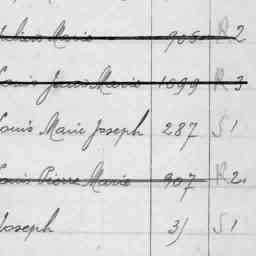 Marie 905 R. 2
Louis Jean Marie 1099 R 3
Louis Marie Joseph 287 S 1
Louis Pierre Marie 907 R. 2.
Joseph 31 S 1